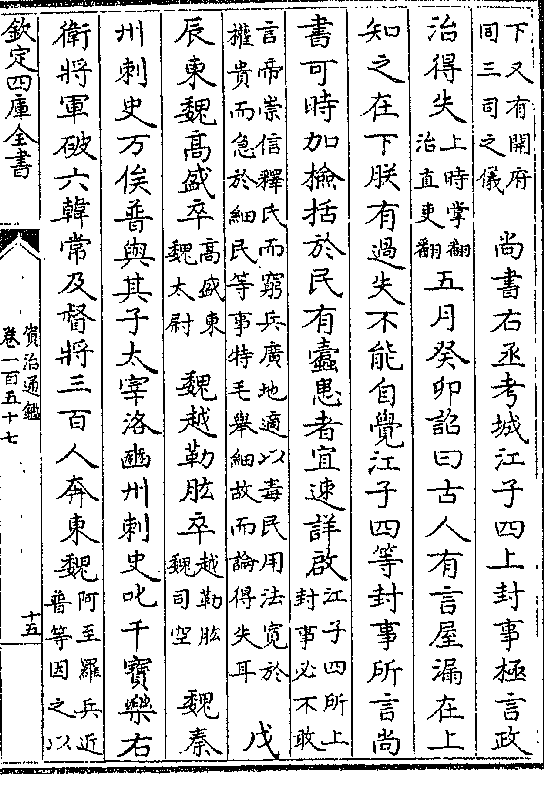 下又有開府同三司之儀　尚書右丞考城江子四上封事極言政
治得失上時掌翻治直吏翻五月癸卯詔曰古人有言屋漏在上
知之在下朕有過失不能自覺江子四等封事所言尚
書可時加檢括於民有蠧患者宜速詳啟江子四所上封事必不敢
言帝崇信釋氏而窮兵廣地適以毒民用法寛於權貴而急於細民等事特毛舉細故而論得失耳　戊
辰東魏高盛卒高盛東魏太尉　魏越勒肱卒越勒肱魏司空　魏秦
州刺史万俟普與其子太宰洛豳州刺史叱干寶樂右
衛將軍破六韓常及督將三百人奔東魏阿至羅兵近普等因之以
欽定四庫全書
資治通鑑
卷一百五十七
十五